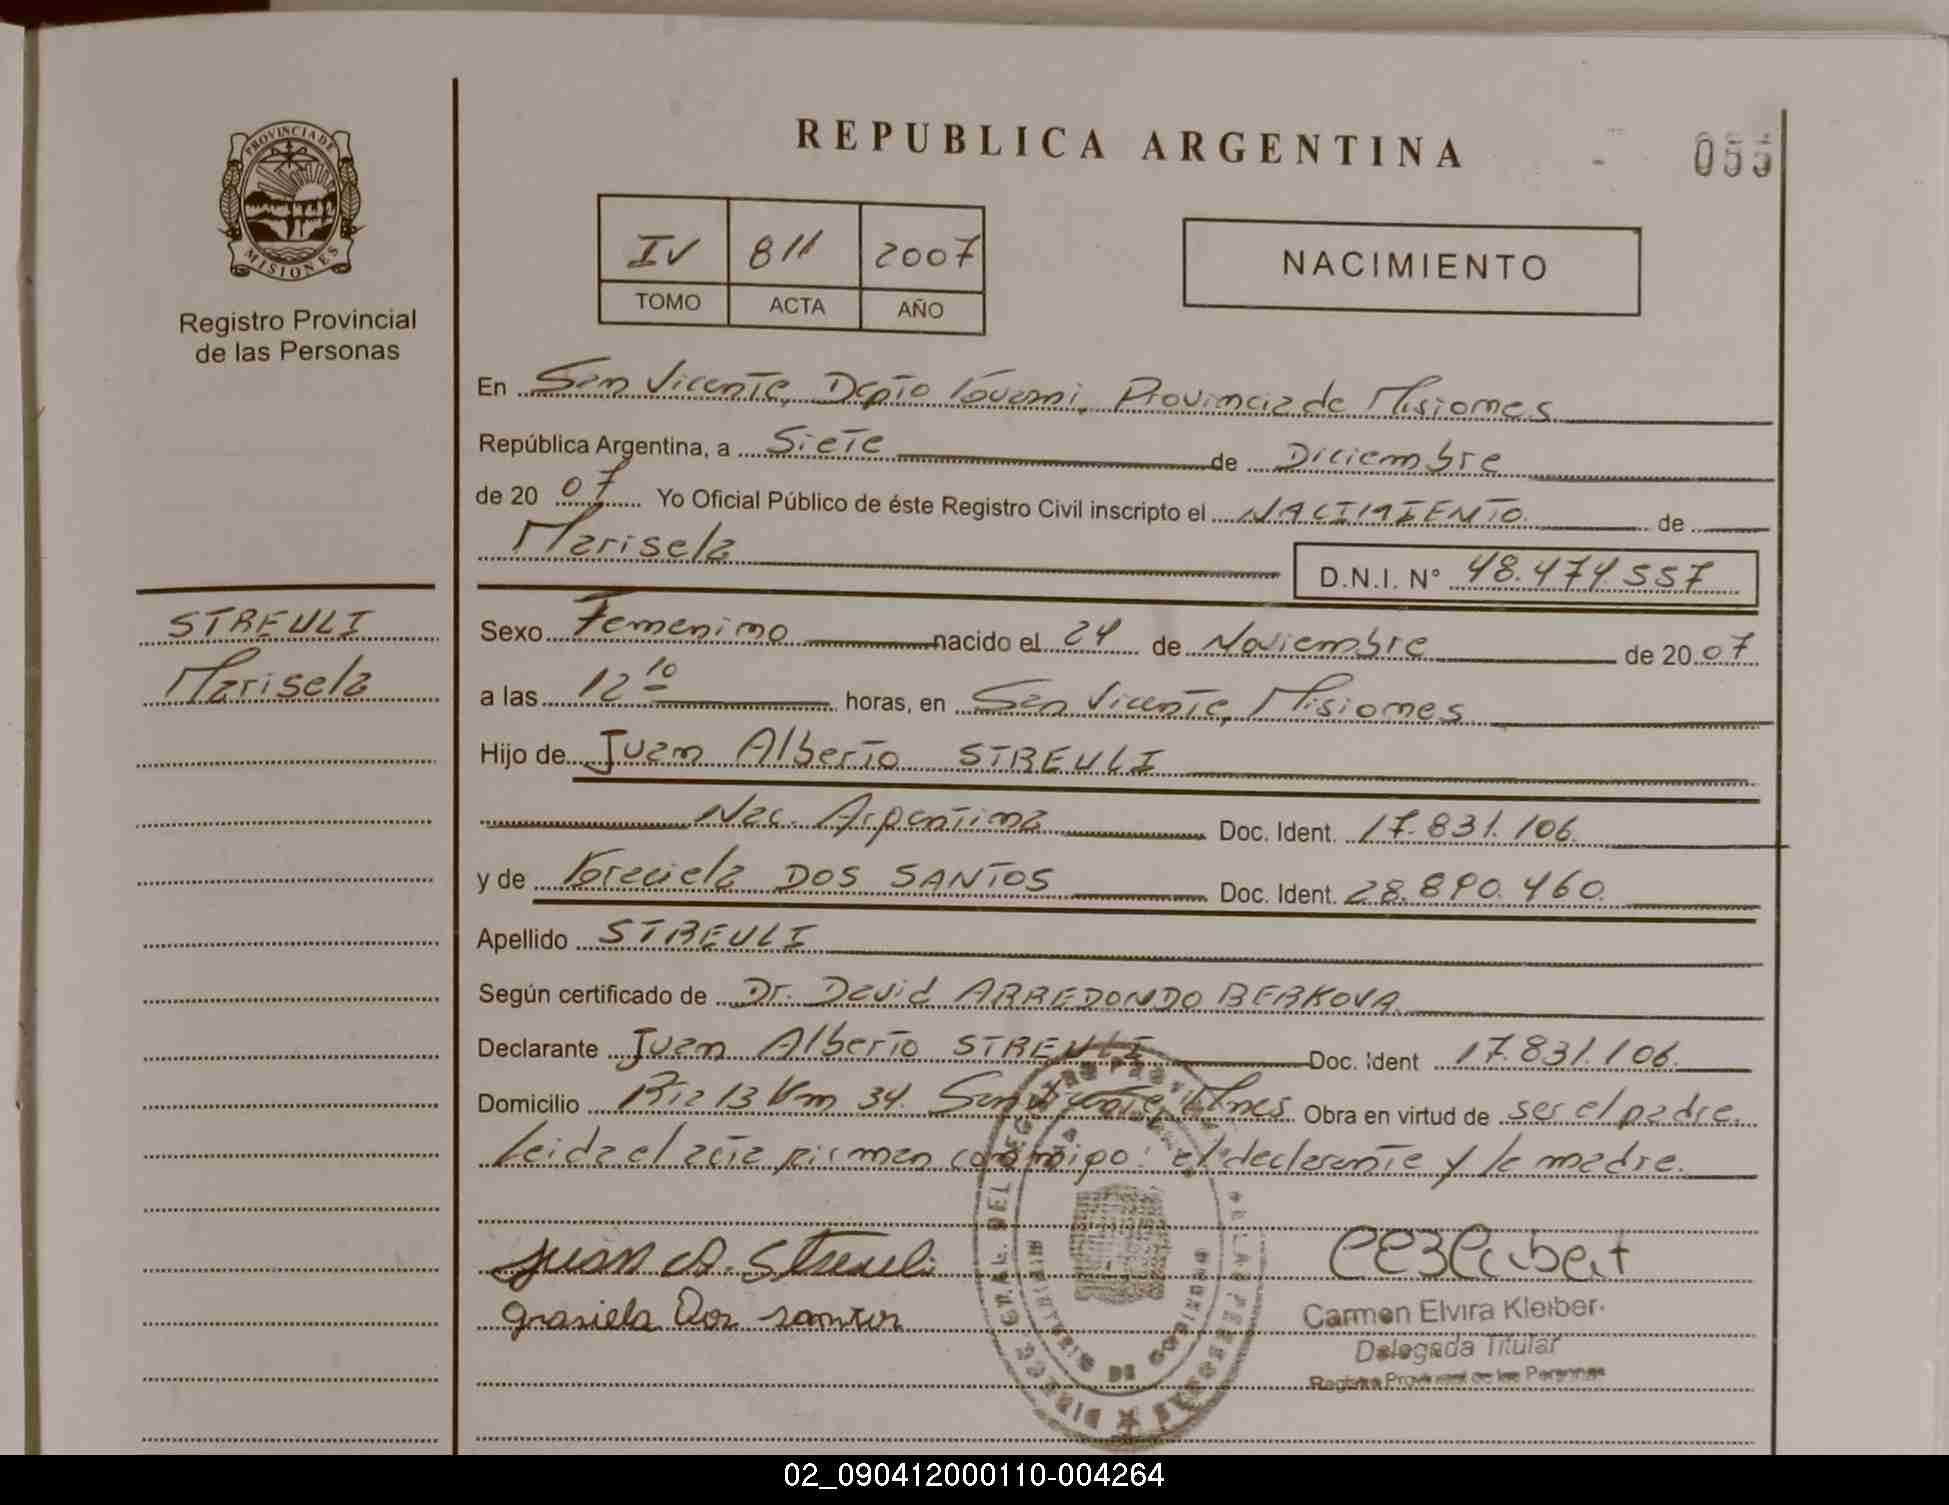 REPUBLICA ARGENTINA
055
PROVINCIA DE
MISIONES
Registro Provincial
de las Personas
IV 811 2007
TOMO ACTA AÑO
NACIMIENTO
En San Vicente, Dpto Guarani, Provincia de Misiones
República Argentina, a Siete de Diciembre
de 20 07 Yo Oficial Público de éste Registro Civil inscripto el NACIMIENTO de
Marisela
D.N.I. N° 48.474.557
STREULI
Marisela
Sexo Femenino nacido el 24 de Noviembre de 20 07
a las 12 10 horas, en San Vicente, Misiones
Hijo de Juan Alberto STREULI
Nac. Argentina Doc. Ident. 17.831.106.
y de Graciela DOS SANTOS Doc. Ident. 28.890.460.
Apellido STREULI
Según certificado de Dr. David ARREDONDO BERKOVA
Declarante Juan Alberto STREULI Doc. Ident 17.831.106.
Domicilio Rta 13 Km 34. San Vicente, Mnes Obra en virtud de ser el padre.
Leida el acta firman conmigo: el declarante y la madre.
Juan A. Streuli
grasiela Dos santos
Carmen Elvira Kleiber
Delegada Titular
Registro Provincial de las Personas
DIREC. GRAL. DEL REGISTRO PROV. DE LAS PERSONAS
MINISTERIO DE GOBIERNO
02_090412000110-004264